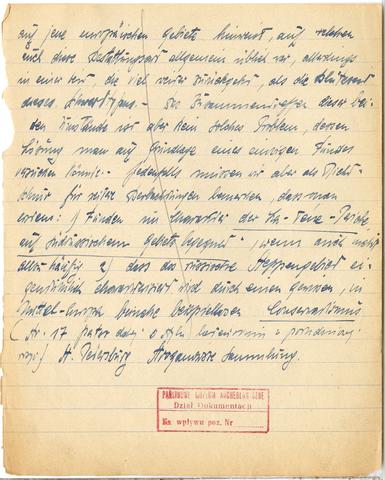 auf jene europäischen Gebiete hinweist, auf welchen
auch diese Bestattungsart allgemein üblich war, allerdings
in einer Zeit, die viel weiter zurückgeht, als die Blütezeit
dieses - Das Zusammentreffen dieser bei-
den Umstände ist aber kein solches Problem, dessen
Lösung man auf Grundlage eines einzigen Fundes
versuchen könnte. - Jedenfalls müssen wir aber als Richt-
schnur für weitere Betrachtungen bemerken, dass man
erstens: 1) Funden im Charakter der La-Tene-Periode
auf südrussischem Gebiete begegnet, wenn auch nicht
allzu häufig 2) dass das russische Steppengebiet ei-
gentümlich charakterisiert wird durch einen gewissen, in
Mittel-Europa beinahe beispiellosen Conservatismus
(Nr. 17
) St. Petersburg Sammlung.
PAŃSTWOWE MUZEUM ARCHEOLOGICZNE
Dział Dokumentacji
Ks wpływu poz. Nr